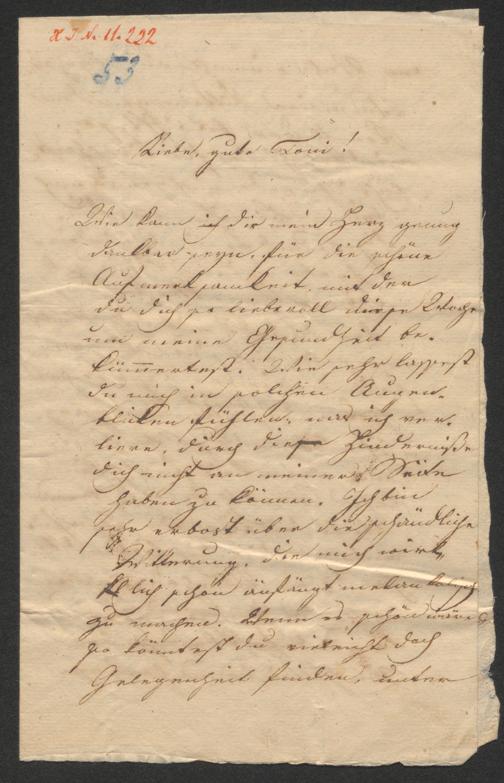 H. I. N. 11.222
53
Liebe, gute Toni!
Wie kann ich dir mein Herz genug
dankbar seyn, für die schöne
Aufmerksamkeit, mit der
du dich so liebevoll diese Woche
um meine Gesundheit be-
kümmertest. Wie sehr lassest
du mich in solchen Augen-
blicken fühlen, was ich ver-
liere, durch diese Hindernisse
dich nicht an meiner Seite
haben zu können. Ich bin
sehr erbost über die schändliche
Witterung, die mich wirk-
lich schon anfängt melankolisch
zu machen. Wenn es schön wäre
so könntest du vieleicht doch
Gelegenheit finden, unter